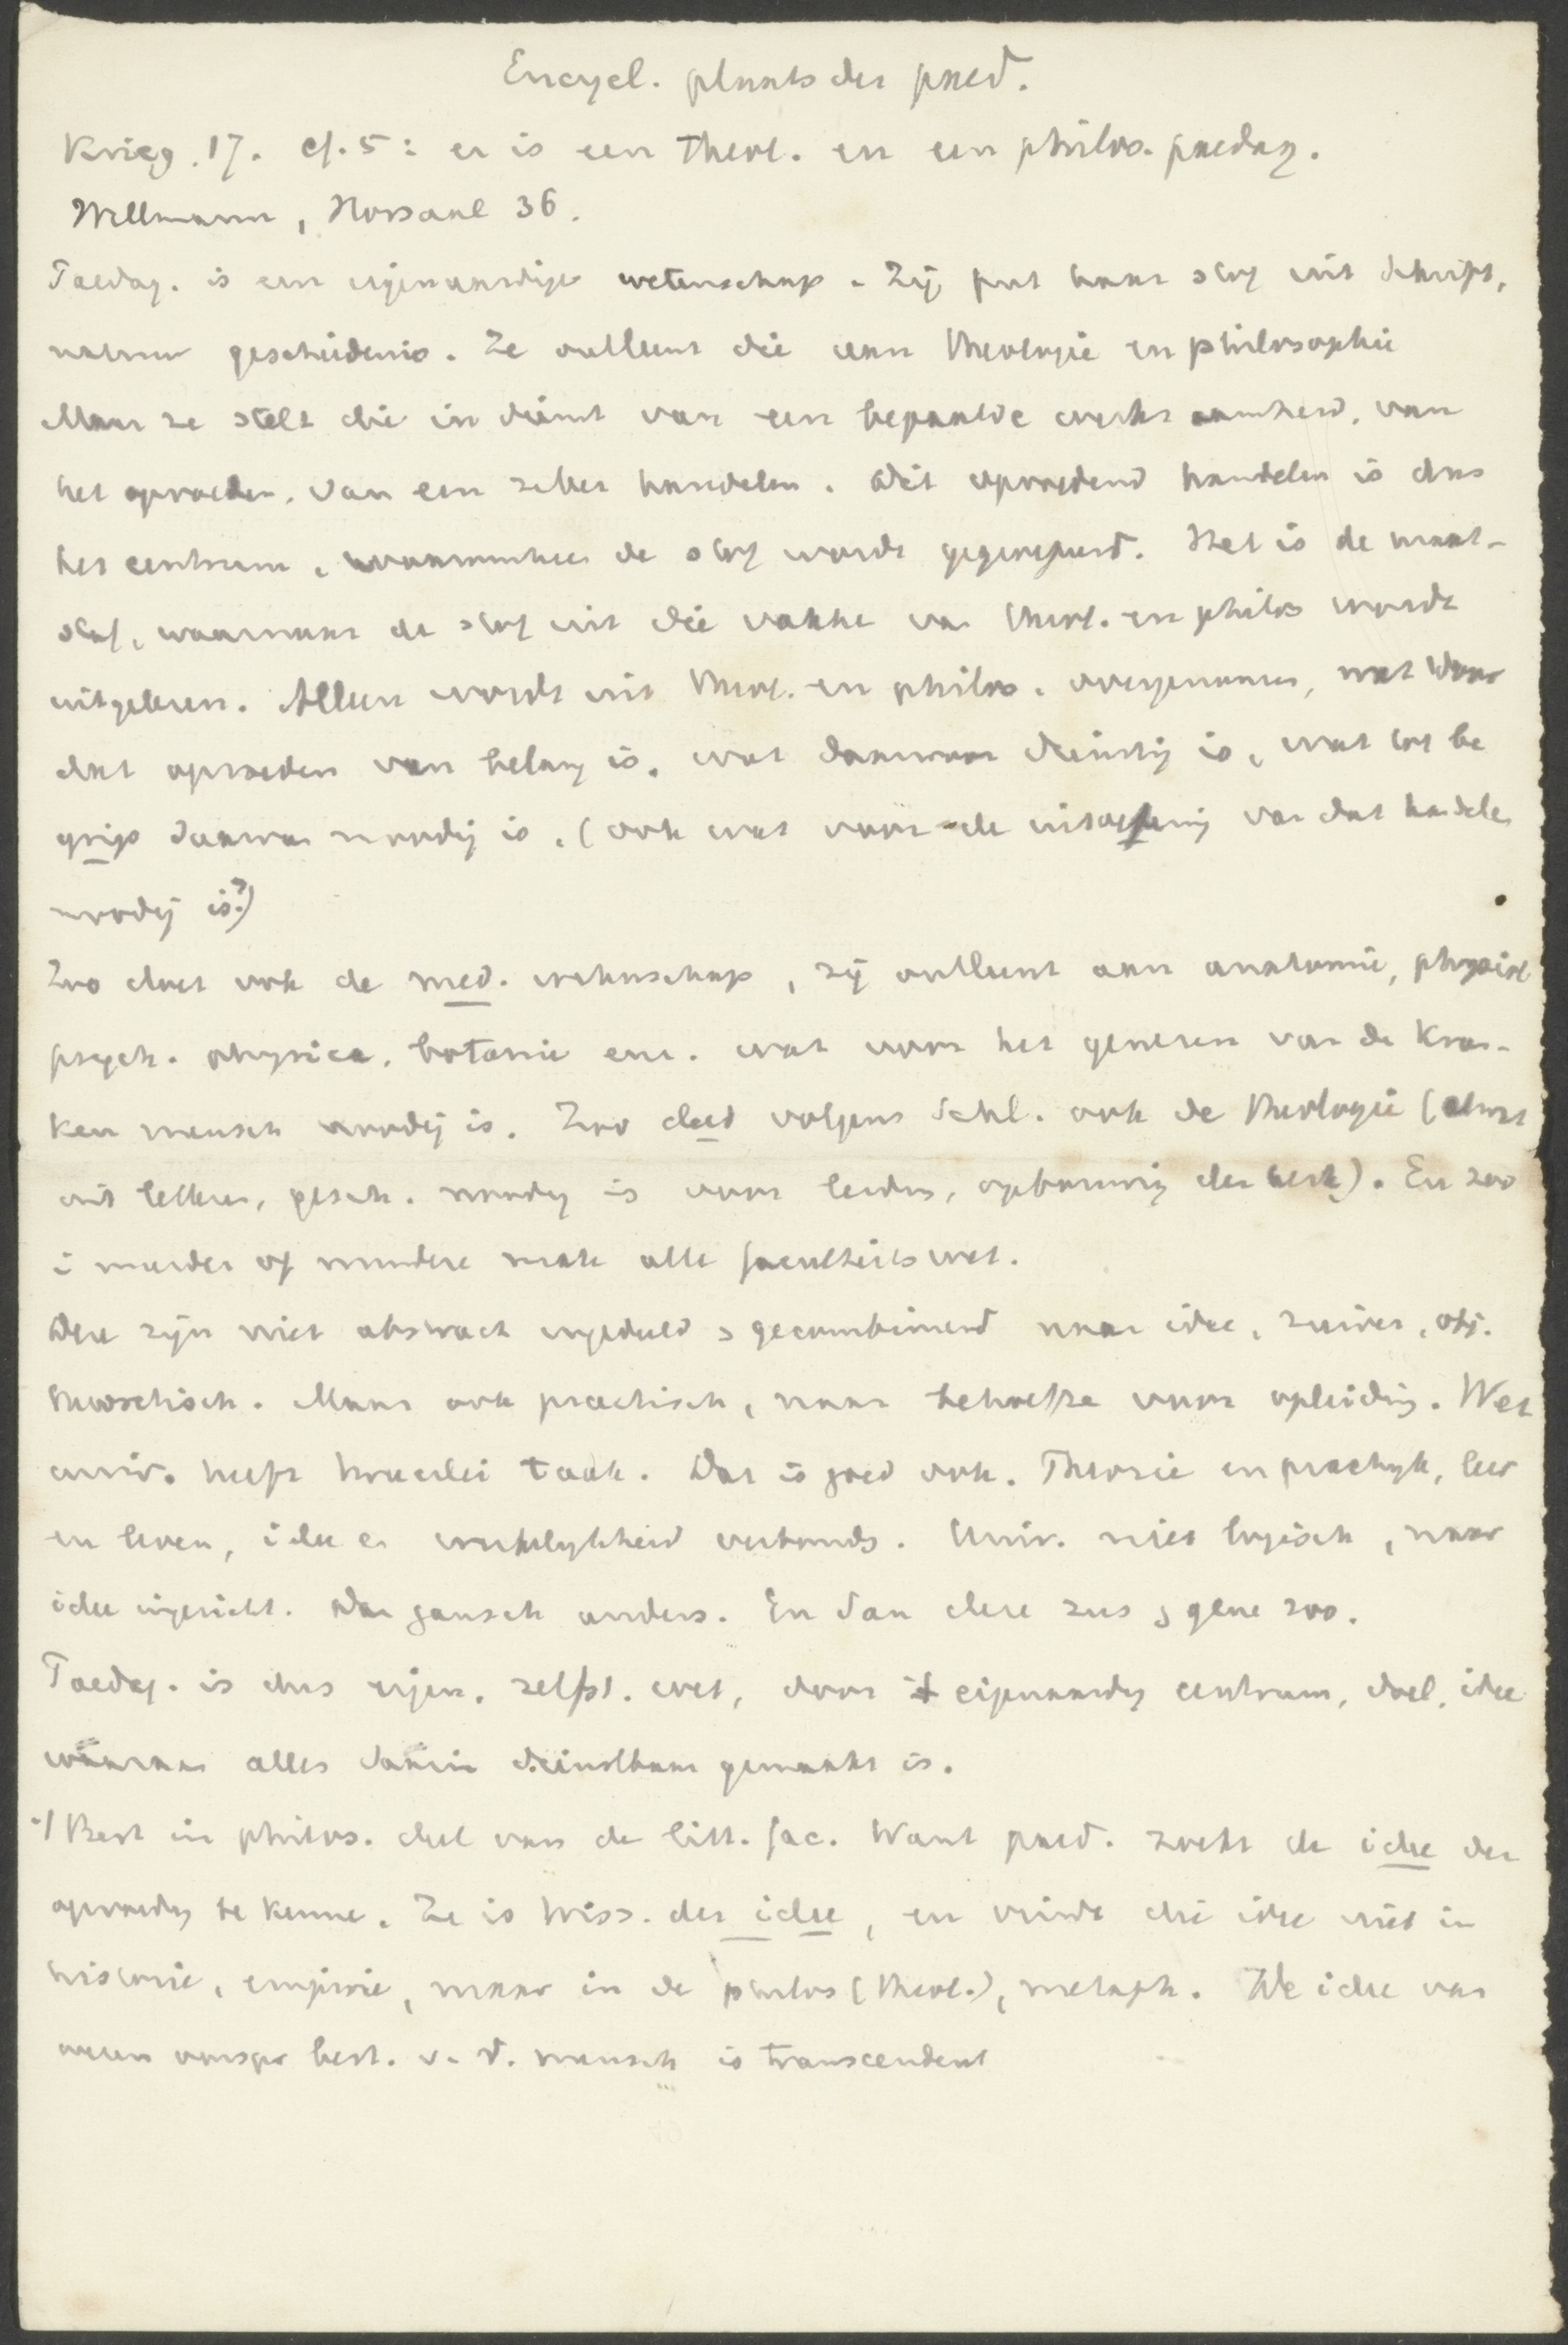 Encycl. plaats der paed.
Krieg. 17. cf. 5: er is een theol. en een philos. paedag.
Willmann, Hörsaal 36.
Paedag. is een eigenaardige wetenschap. Zij put haar stof uit Schrift,
natuur geschiedenis. Ze ontleent die aan theologie en philosophie
Maar ze stelt die in dienst van een bepaalde werkzaamheid, van
het opvoeden, van een zeker handelen. Dit opvoedend handelen is dus
het centrum, waaromheen de stof wordt gegroepeerd. Het is de maat-
staf, waarnaar de stof uit die vakken van theol. en philos wordt
uitgelezen. Alleen wordt uit theol. en philos. overgenomen, wat voor
dat opvoeden van belang is, wat daarvoor dienstig is, wat tot be
grip daarvan noodig is, (ook wat voor de uitoefening van dat handelen
noodig is?)
Zoo doet ook de med. wetenschap, zij ontleent aan anatomie, physiol
psych. physica, botanie enz. wat voor het genezen van de kran-
ken mensch noodig is. Zoo deed volgens Schl. ook de theologie (alwat
uit letteren, gesch. noodig is voor leiding, opbouwing der kerk). En zoo
i meerder of mindere mate alle faculteitswet.
Deze zijn niet abstract ingedeeld & gecombineerd naar idee, zuiver, obj.
theoretisch. Maar ook practisch, naar behoefte voor opleiding. Wet
univ. heeft tweeerlei taak. Dat is goed ook. Theorie en practijk, leer
en leven, idee en werkelijkheid verbonds. Univ. niet logisch, naar
idee ingericht. Dan gansch anders. En dan deze zus & gene zoo.
Paedag. is dus eigen. zelfst. wet, door eigenaardig centrum, doel, idee
waaraan alles daarin dienstbaar gemaakt is.
Best in philos. deel van de litt. fac. Want paed. zoekt de idee der
opvoeding te kenne. Ze is Wiss. der idee, en vindt die idee niet in
historie, empirie, maar in de philos (theol.), metaph. De idee van
wezen oorspr best. v. d. mensch is transcendent